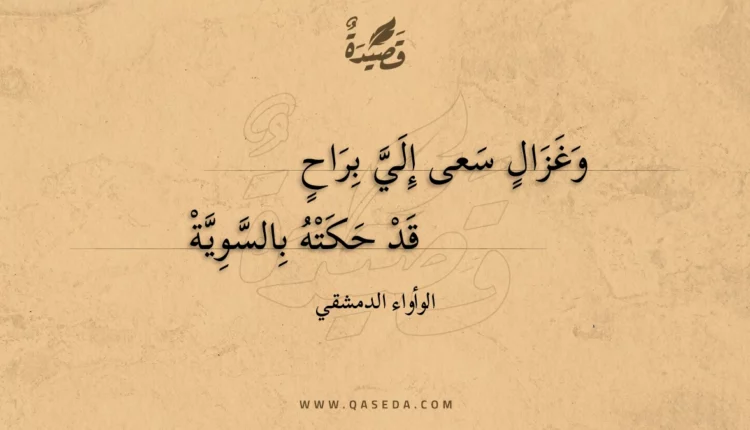 قَصِيْدَةٌ
وَغَزَالٍ سَعى إِلَيَّ بِرَاحٍ
قَدْ حَكَتْهُ بِالسَّوِيَّةْ
الوأواء الدمشقي
WWW.QASEDA.COM